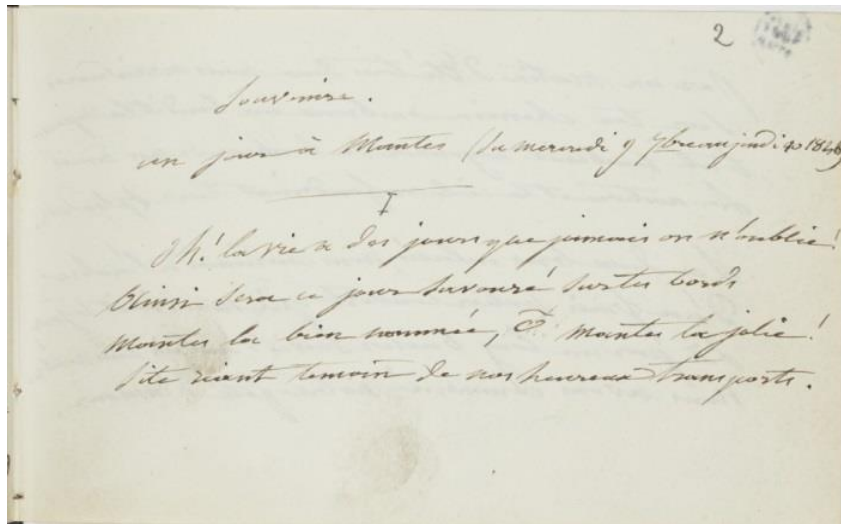 2
Souvenirs.
un jour à Mantes (du mercredi 9 7bre au jeudi 10 1846)
I
Oh! la vie a des jours que jamais on n'oublie!
Ainsi sera ce jour savouré sur tes bords
Mantes la bien nommée, ô Mantes la jolie!
Site riant temoin de nos heureux transports.